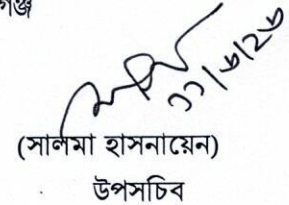 গঞ্জ
১১/৬/২৬
(সালমা হাসনায়েন)
উপসচিব